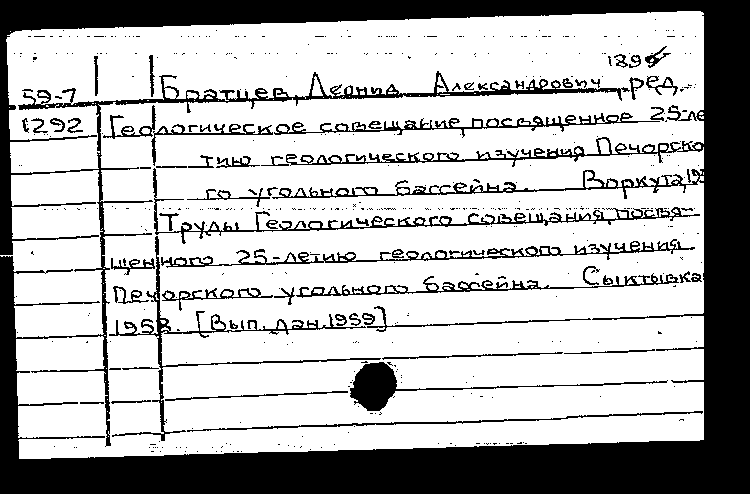 1899
59-7 Братцев, Леонид Александрович, ред.
1292 Геологическое совещание, посвященное 25-ле
тию геологического изучения Печорско
го угольного бассейна. Воркута,
Труды Геологического совещания, посвя-
щенного 25-летию геологического изучения
Печорского угольного бассейна. Сыктывка
1958. [Вып. дан. 1959]